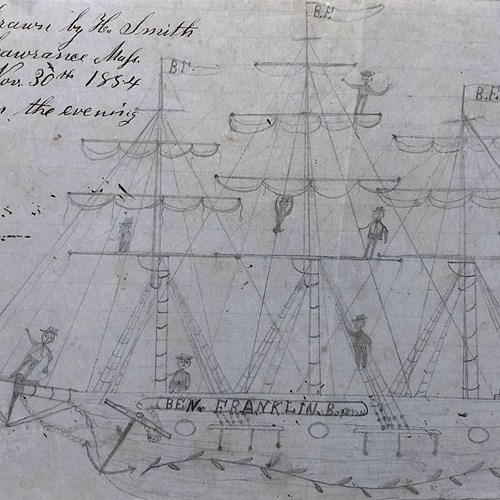 Drawn by H. Smith
Lawrance Mass.
Nov. 30th 1854
in the evening
B.F.
B.F.
B.F.
BEN. FRANKLIN.